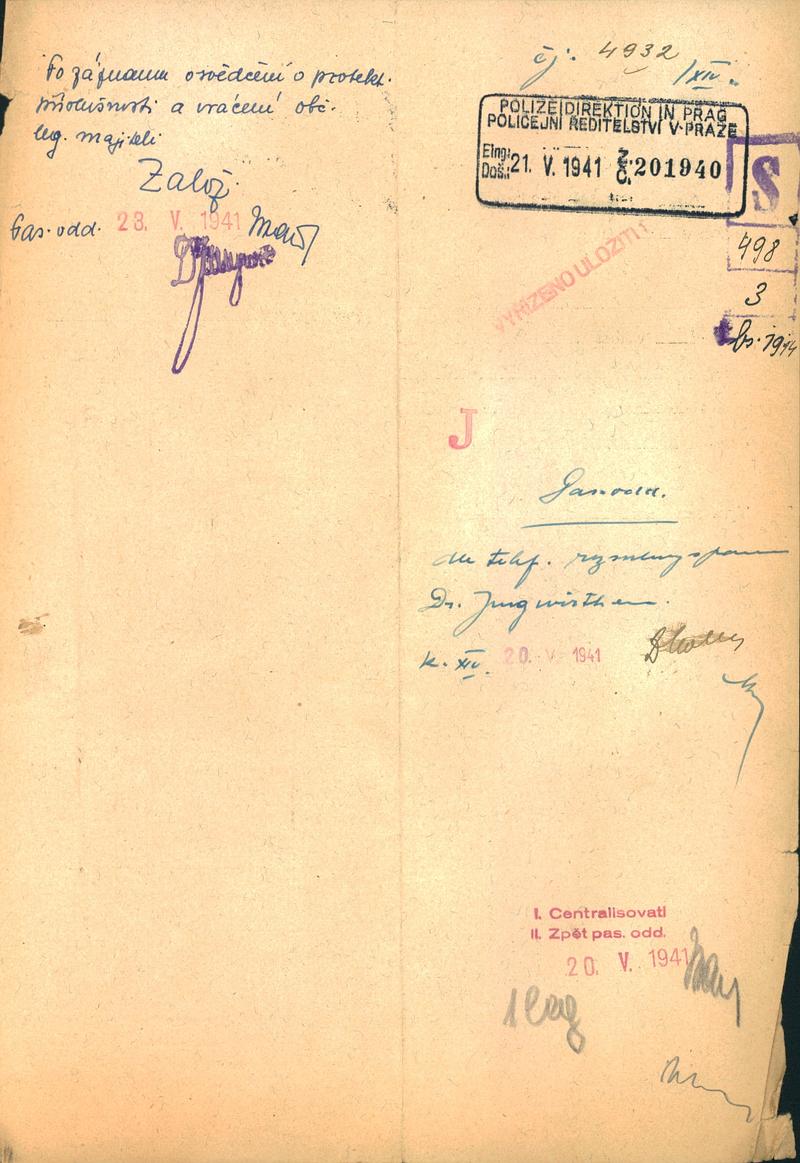 Po záznamu osvědčení o protekt.
příslušnosti a vrácení obč.
leg. majiteli
Založ.
Pas. odd. 23. V. 1941
čj. 4932
/XIV.
POLIZEIDIREKTION IN PRAG
POLICEJNÍ ŘEDITELSTVÍ V PRAZE
Eing.:
Doš.: 21. V. 1941 Z. Č. 201940
S
498
3
1914
VYŘÍZENO ULOŽITI!
J
Pas. odd.
dle telef.
Dr. Jungwirthem.
k. XIV. 20. V. 1941
I. Centralisovati
II. Zpět pas. odd.
20. V. 1941